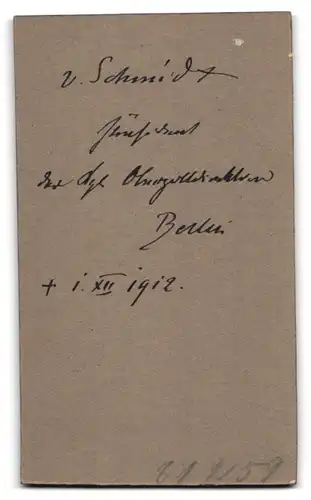 v. Schmidt
Präsident
der Kgl. Oberzolldirektion
Berlin
+ 1. XII 1912.